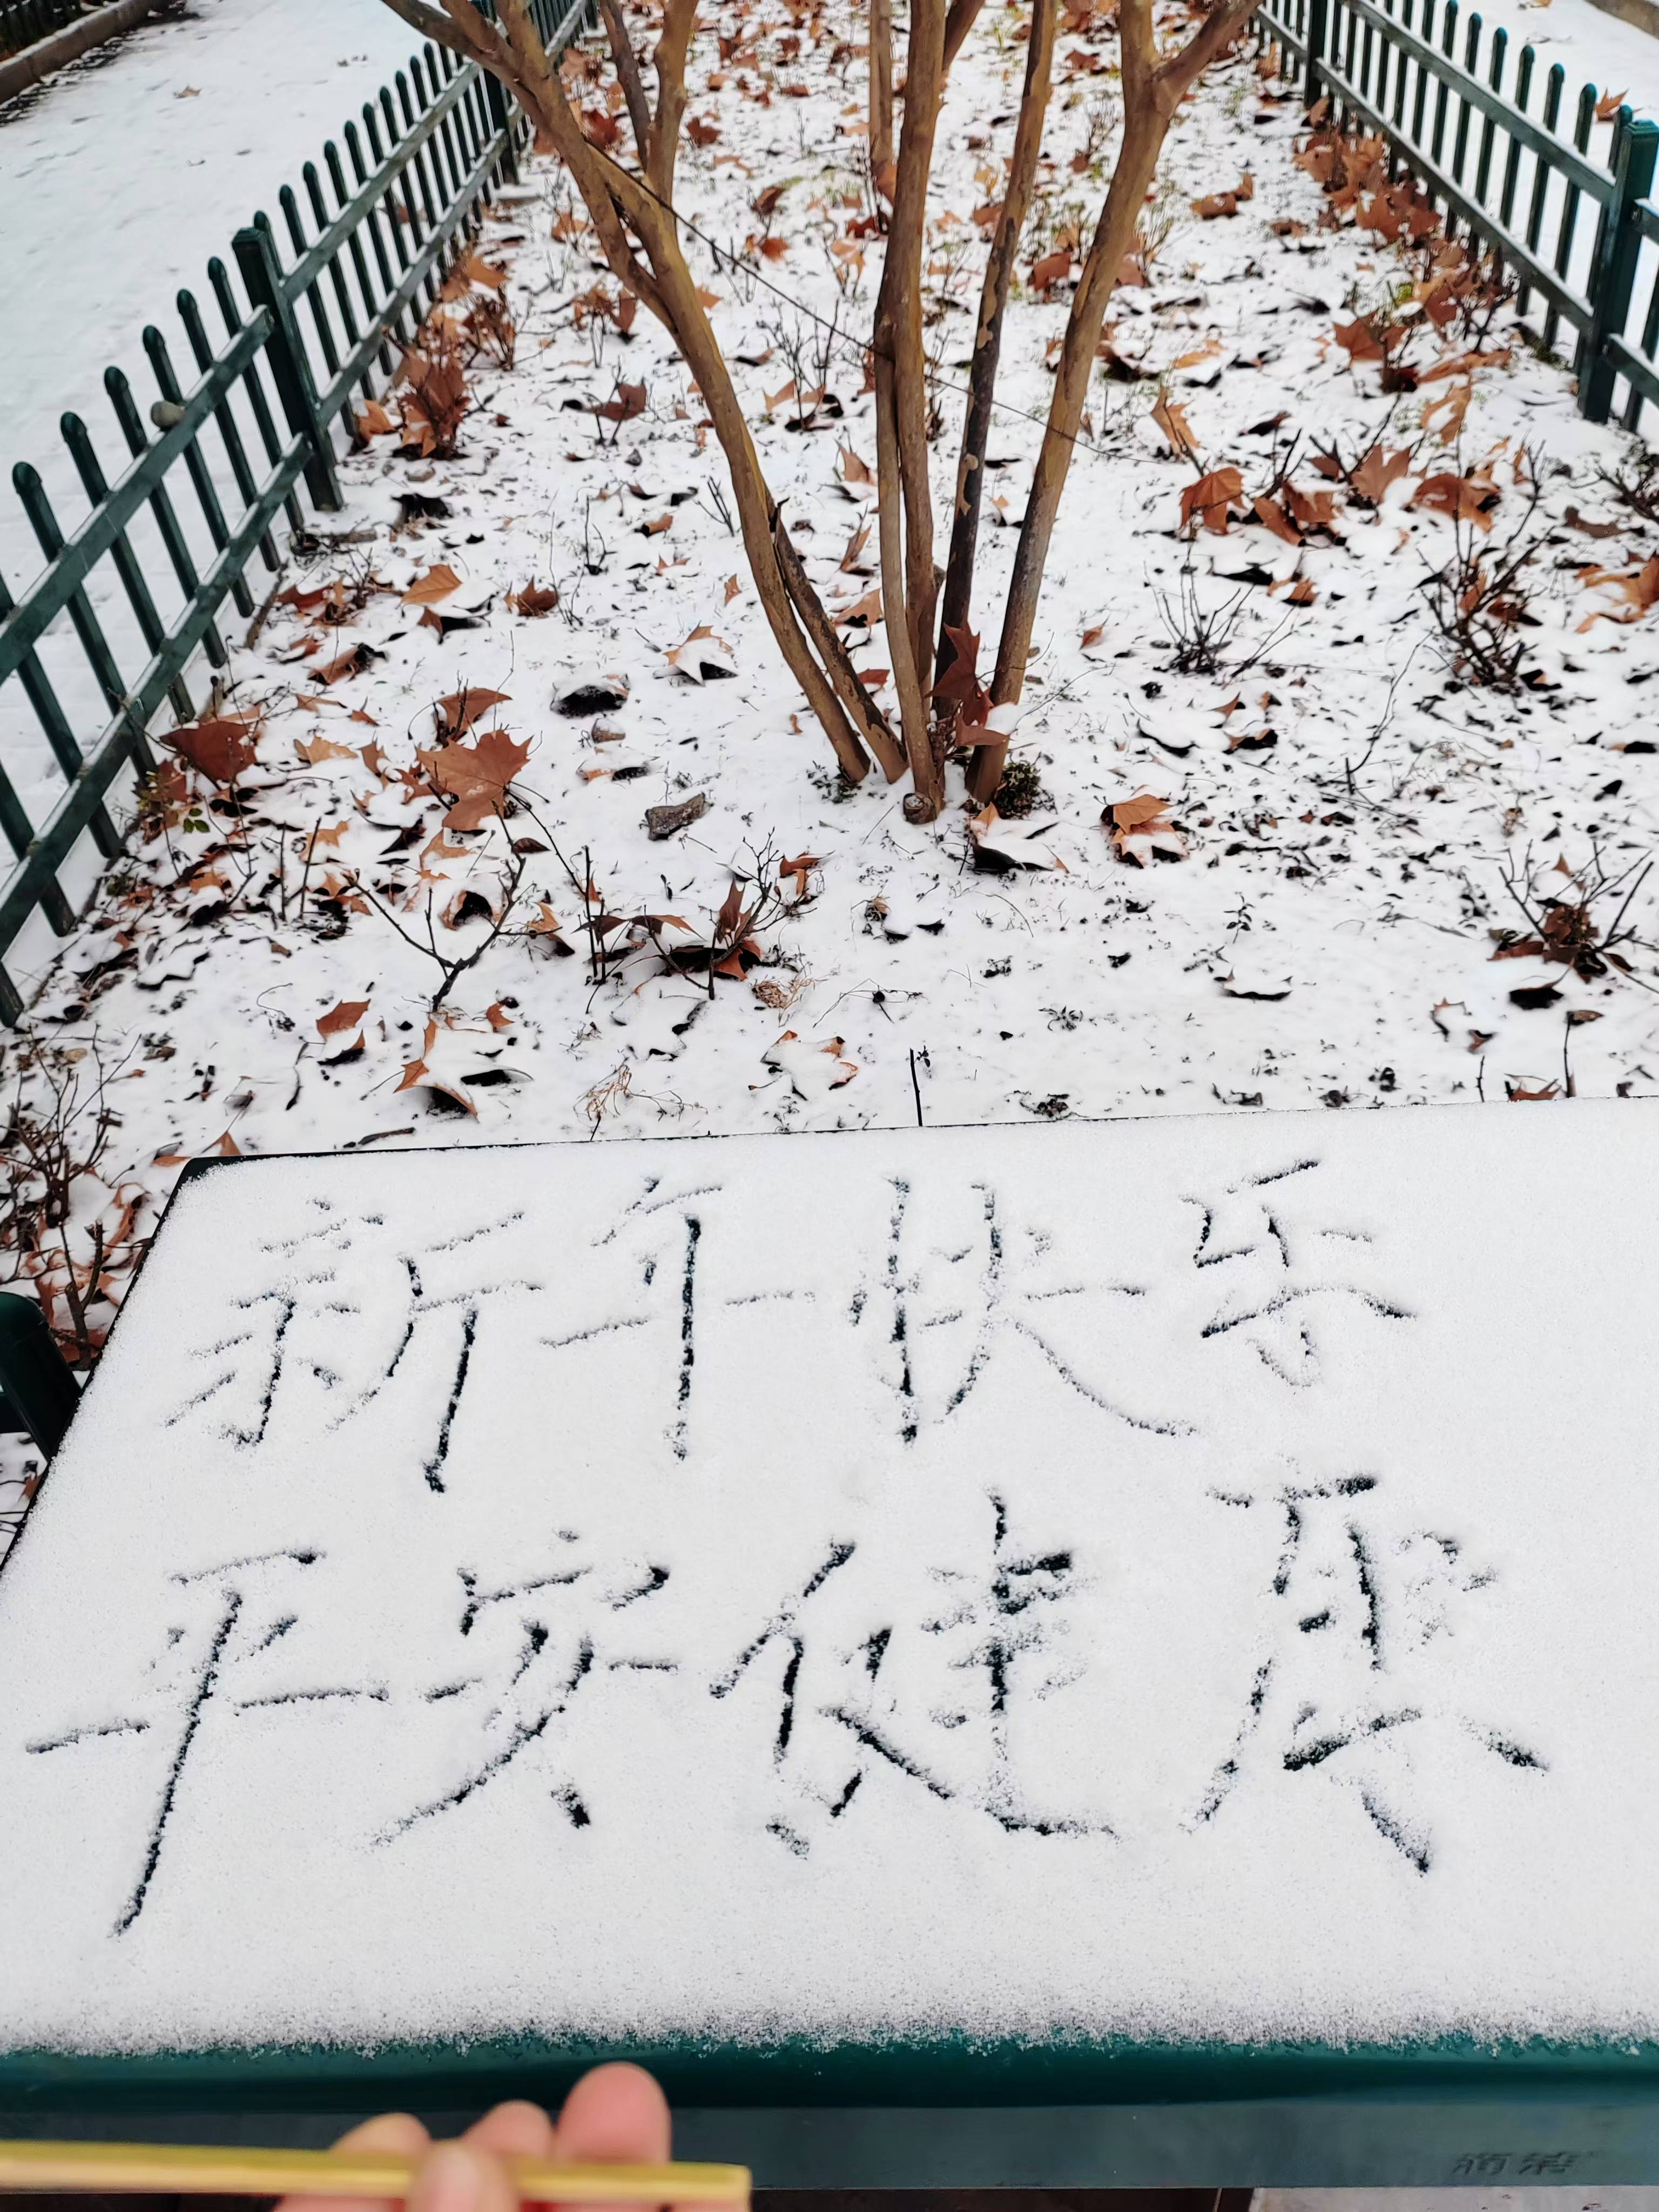 新年快乐
平安健康